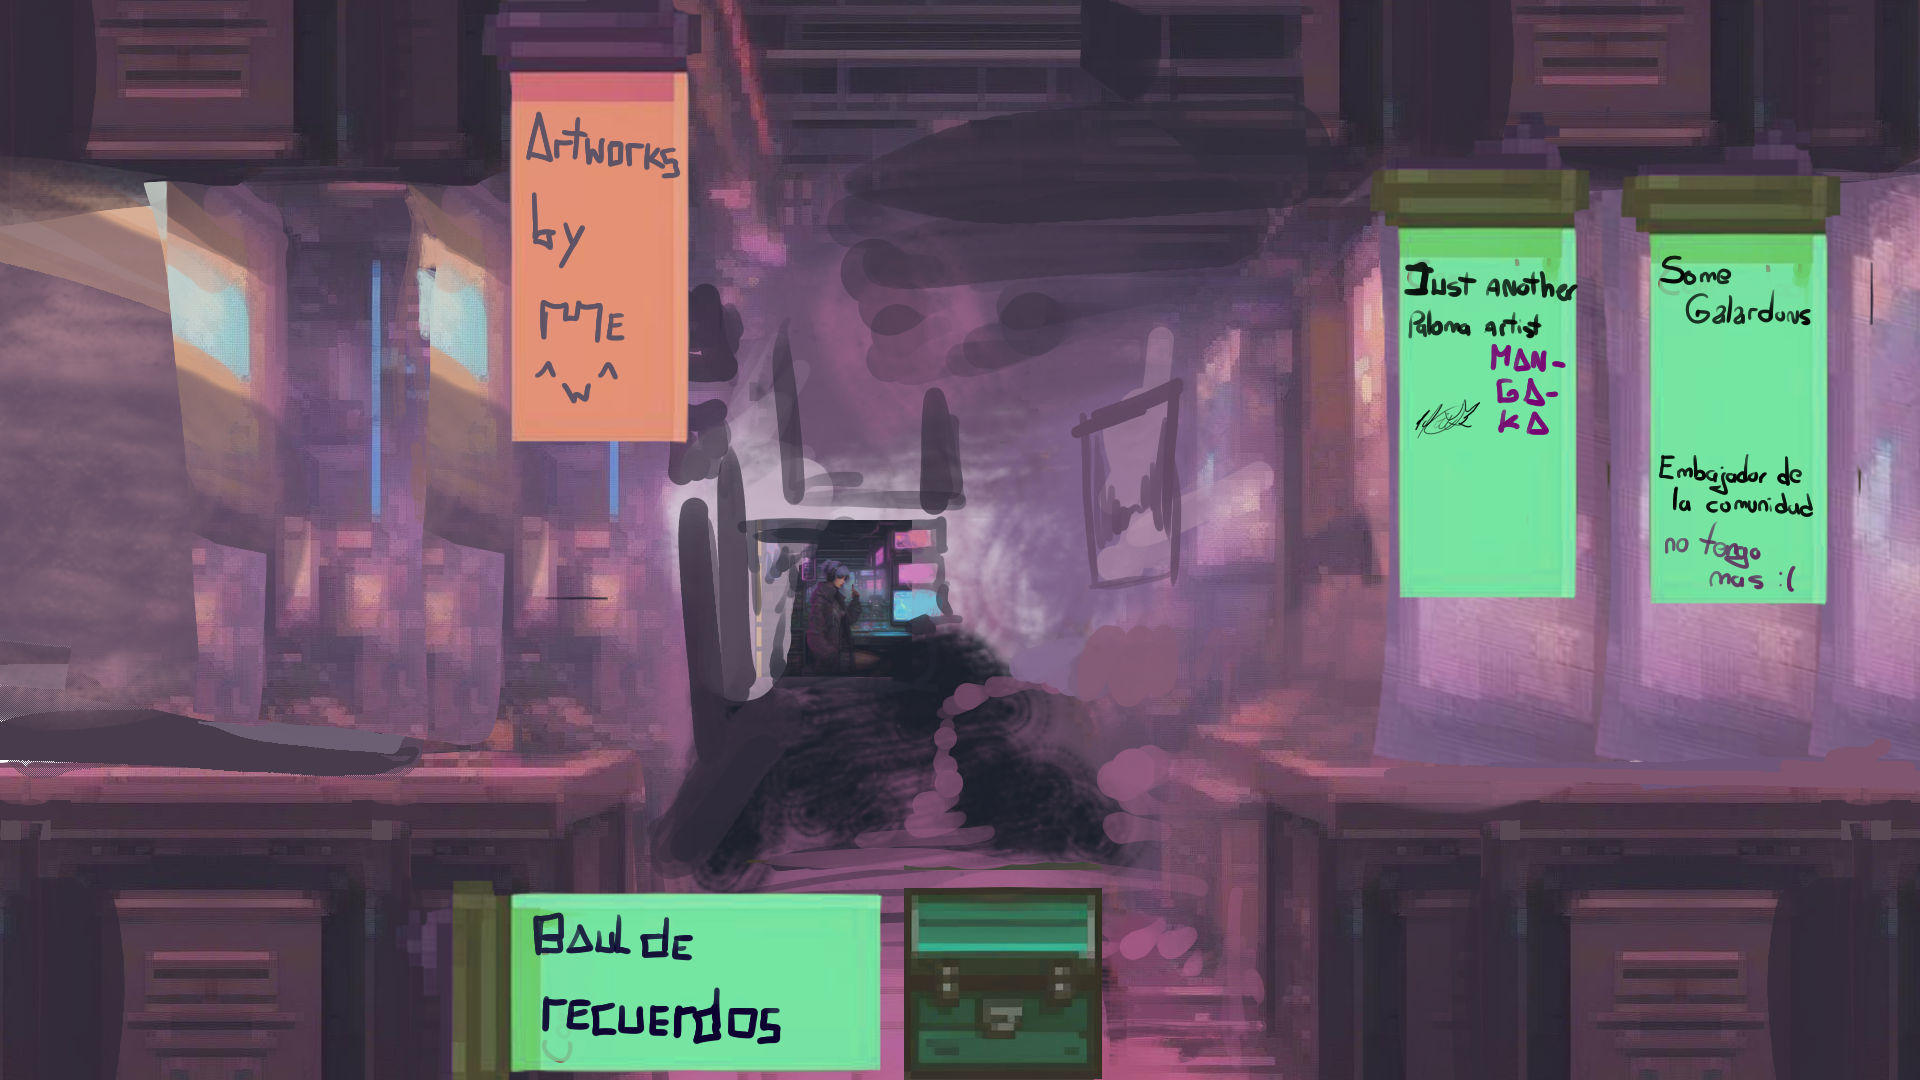 Artworks
by
mE
^w^
Just another
Paloma artist
MAN-
GA-
KA
Some
Galardons
Embajador de
la comunidad
no tengo
mas :(
Baul de
recuerdos